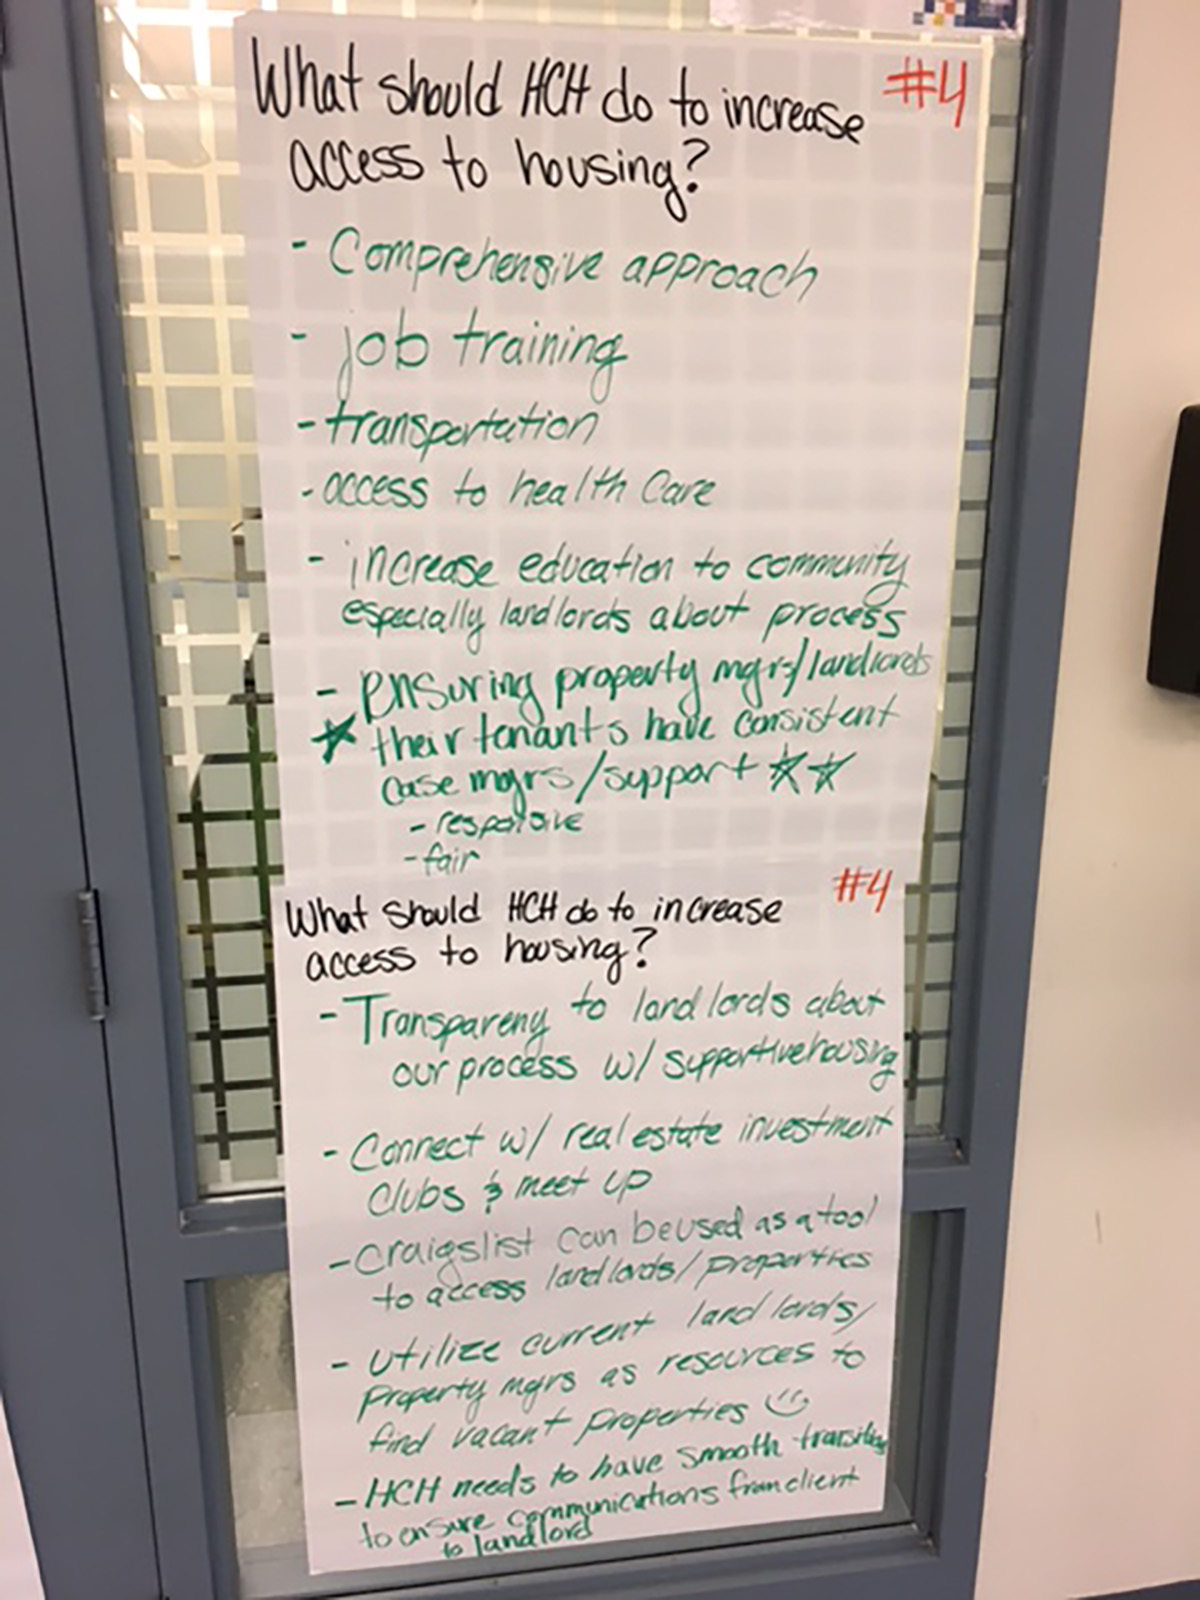 What should HCH do to increase #4
access to housing?
- Comprehensive approach
- job training
- transportation
- access to health Care
- increase education to community
especially landlords about process
- ensuring property mgrs/landlords
★ their tenants have consistent
case mgrs/support ★★
- responsive
- fair
What should HCH do to increase #4
access to housing?
- Transpareny to landlords about
our process w/ supportive housing
- Connect w/ real estate investment
Clubs & meet up
- Craigslist can be used as a tool
to access landlords/properties
- utilize current landlords/
property mgrs as resources to
find vacant properties ☺
- HCH needs to have smooth transition
to ensure communications from client
to landlord